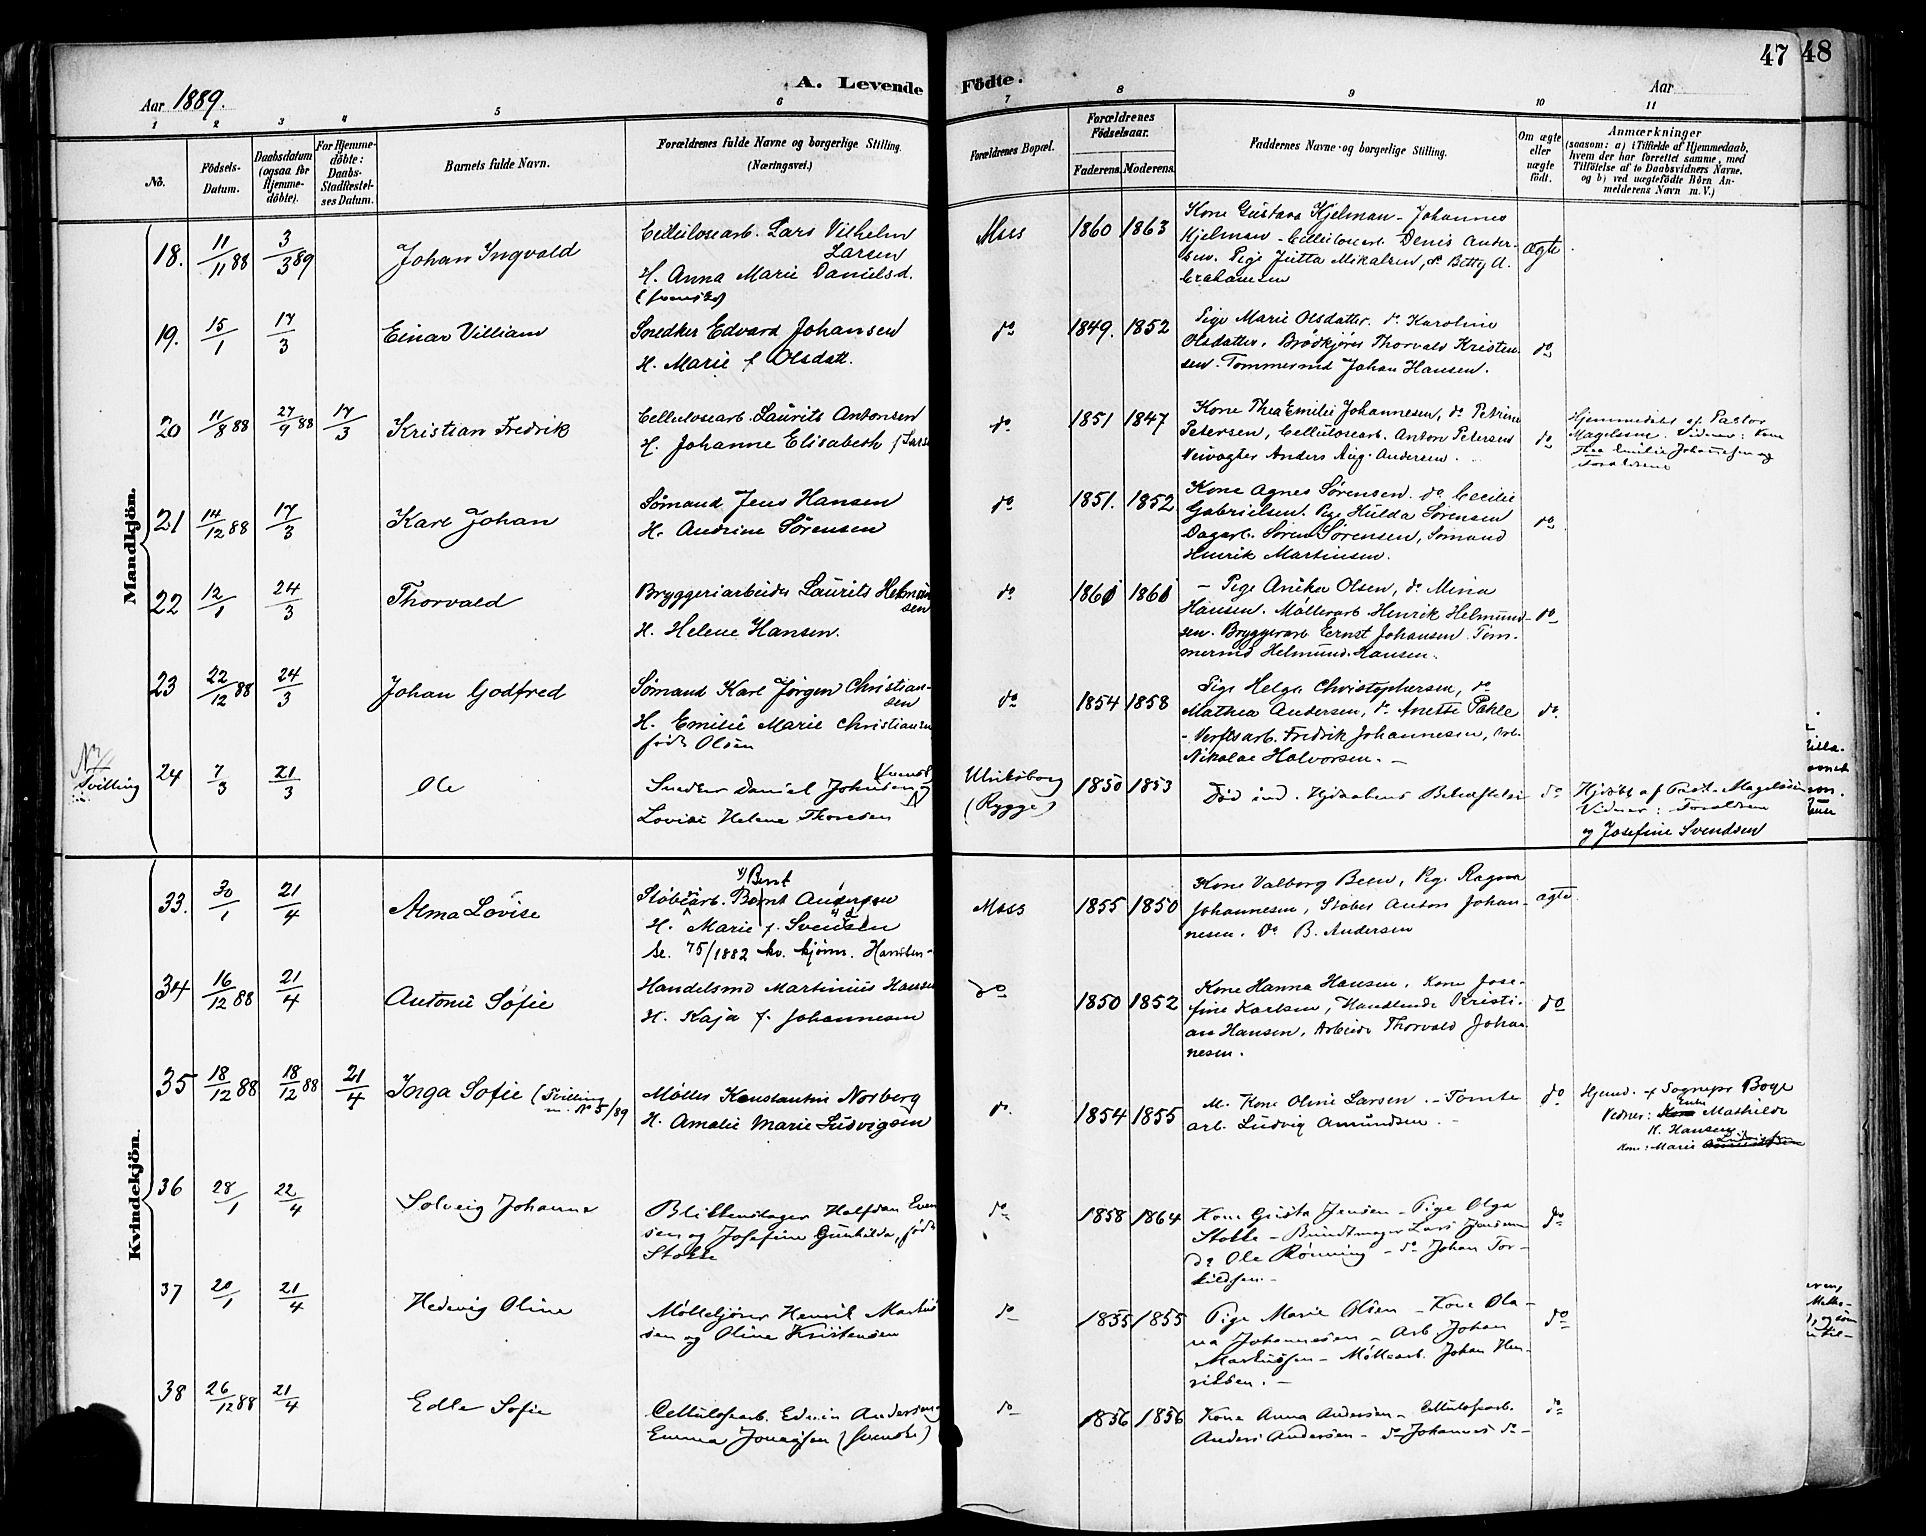 47 48
A. Levende Fødte.
Aar 1889.
Aar
1 2 3 4 5 6 7 8 9 10 11
No.
Fødsels-Datum.
Daabsdatum (ogsaa for Hjemme-døbte).
For Hjemme-døbte: Daabs-Stadfæstelses Datum.
Barnets fulde Navn.
Forældrenes fulde Navne og borgerlige Stilling. (Næringsvei.)
Forældrenes Bopæl.
Forældrenes Fødselsaar.
Faderens. Moderens.
Faddernes Navne og borgerlige Stilling.
Om ægte eller uægte født.
Anmærkninger
(saasom: a) i Tilfælde af Hjemmedaab, hvem der har forrettet samme, med Tilføielse af to Daabsvidners Navne, og b) ved uægtefødte Børn Anmelderens Navn m. V.)
Mandkjøn.
18. 11/11 88 3/3 89 Johan Ingvald
Cellulosearb. Lars Vilhelm
Larsen
H. Anna Marie Danielsd.
(svensk)
Moss 1860 1863
Kone Gustava Kjelman - Johannes
Kjelman - Cellulosearb. Denis Ander-
sen. Pige Jutta Mikalsen, do Betty A.
ægte
19. 15/1 17/3 Einar Villiam
Snedker Edvard Johansen
H. Marie f. Olsdatt.
do 1849. 1852
Pige Marie Olsdatter. do Karoline
Olsdatter, Brødkjører Thorvald Kristen-
sen. Tømmermd Johan Hansen.
do
20 11/8 88 27/9 88 17/3 Kristian Fredrik
Cellulosearb. Laurits Antonsen
H. Johanne Elisabeth f.
do 1851 1847
Kone Thea Emilie Johannesen, do Petrine
Petersen, Cellulosearb. Anton Petersen
Veivogter Anders Aug. Andersen.
do
Hjemmedøbt af Pastor
Magelssen. Vidner: Kone
Thea Emilie Johannesen og
Forældrene
21 14/12 88 17/3 Karl Johan
Sømand Jens Hansen
H. Andrine Sørensen
do 1851. 1852
Kone Agnes Sørensen. do Cecilie
Gabrielsen. Pige Hulda Sørensen
Dagarb. Søren Sørensen, Sømand
Henrik Martinsen.
do
22 12/1 24/3 Thorvald
Bryggeriarbeider Laurits Helmun
sen
H. Helene Hansen.
do 1861 1861
- Pige Anika Olsen, do Mina
Hansen. Møllerarb Henrik Helmund-
sen. Bryggerarb Ernst Johansen. Tøm-
mermd Helmund Hansen.
do
23 22/12 88 24/3 Johan Godfred
Sømand Karl Jørgen Christian-
sen
H. Emilie Marie Christiansen
født Olsen
do 1854 1858
Pige Helga Christophersen, do
Mathea Andersen, do Anette Pahle
- Verftsarb. Fredrik Johannesen, Arb.
Nikolai Halvorsen. -
do.
Tvilling
24 7/3 21/3 Ole
Snedker Daniel Johnsen
Lovise Helene Thoresen
(Rygge)
1850 1853
Død ind. Hjdaabens Bekræftelse
do
Hjdøbt af Past. Magelssen
Vidner: Forældrene
og Josefine Svendsen
Kvindekjøn.
33. 30/1 21/4 Alma Lovise
Bernt
Støberarb. Bernt Andersen
H. Marie f. Svendsen
Se. 75/1882 kv. kjønn.
Moss 1855 1850
Kone Valborg Been, Pige Ragna
Johannesen, Støber Anton Johan-
nesen. Do B. Andersen
ægte
34 16/12 88 21/4 Antonie Sofie
Handelsmd Martinius Hansen
H. Kaja f. Johannesen
do 1850 1852
Kone Hanna Hansen, Kone Jose-
fine Karlsen, Handlende Kristi-
an Hansen, Arbeider Thorvald Johan
nesen.
do
35 18/12 88 18/12 88 21/4 Inga Sofie (Tvilling
m. No 5/89
Møller Konstantin Norberg
H. Amalie Marie Ludvigsen
do. 1854 1855
M. Kone Oline Larsen. - Tomte
arb. Ludvig Amundsen. -
do
Hjemd. af Sognepr Boye
Vidner: Enke Mathilde
K. Hansen
Kone: Marie
36 28/1 22/4 Solveig Johanne
Blikkenslager Halfdan Even
sen og Josefine Gunhilda, født
Stokke
do 1858 1864
Kone Gusta Jensen - Pige Olga
Stokke - Bundtmager Lars Jensen
do Ole Rønning - do Johan Tor-
kildsen. -
do
37 20/1 21/4 Hedevig Oline
Møllekjører Henrik Martin
sen og Oline Kristensen
do 1855 1855
Pige Marie Olsen - Kone Ola-
va Johannesen - Arb Johan
Markussen - Møllearb. Johan Hen-
riksen. -
do
38 26/12 88 21/4 Edle Sofie
Cellulosearb. Edvin Andersen og
Emma Jonassen (svenske)
do 1856 1856
Kone Anna Andersen - Cellulosearb.
Anders Andersen - do Johannes do -
do